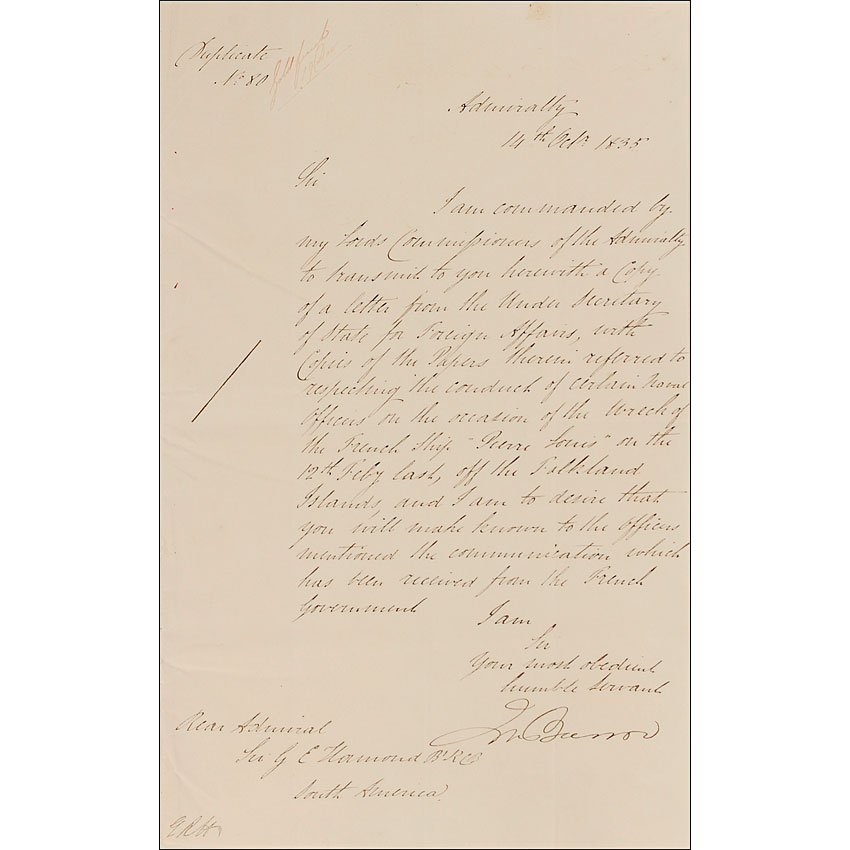 Duplicate
No 80
Admiralty
14th Octr 1835
Sir
I am commanded by
my Lords Commissioners of the Admiralty
to transmit to you herewith a Copy
of a letter from the Under Secretary
of State for Foreign Affairs, with
Copies of the Papers therein referred to
respecting the conduct of certain Naval
Officers on the occasion of the Wreck of
the French Ship "Pierre Louis" on the
12th Feby last, off the Falkland
Islands, and I am to desire that
you will make known to the officers
mentioned the communication which
has been received from the French
Government
I am
Sir
Your most obedient
humble Servant
Jn Barrow
Rear Admiral
Sir G E Hamond Bt KCB
South America